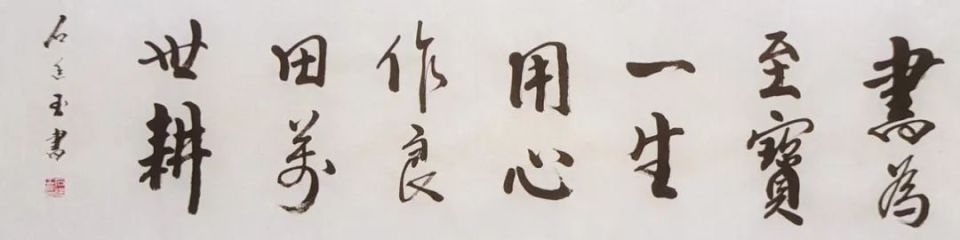 書為
至寶
一生
用心
作良
田萬
世耕
石玉書